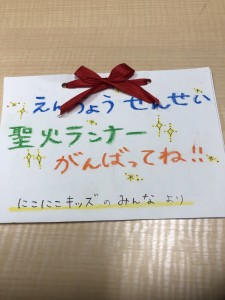 えんちょう せんせい
聖火ランナー
がんばってね!!
にこにこキッズのみんなより